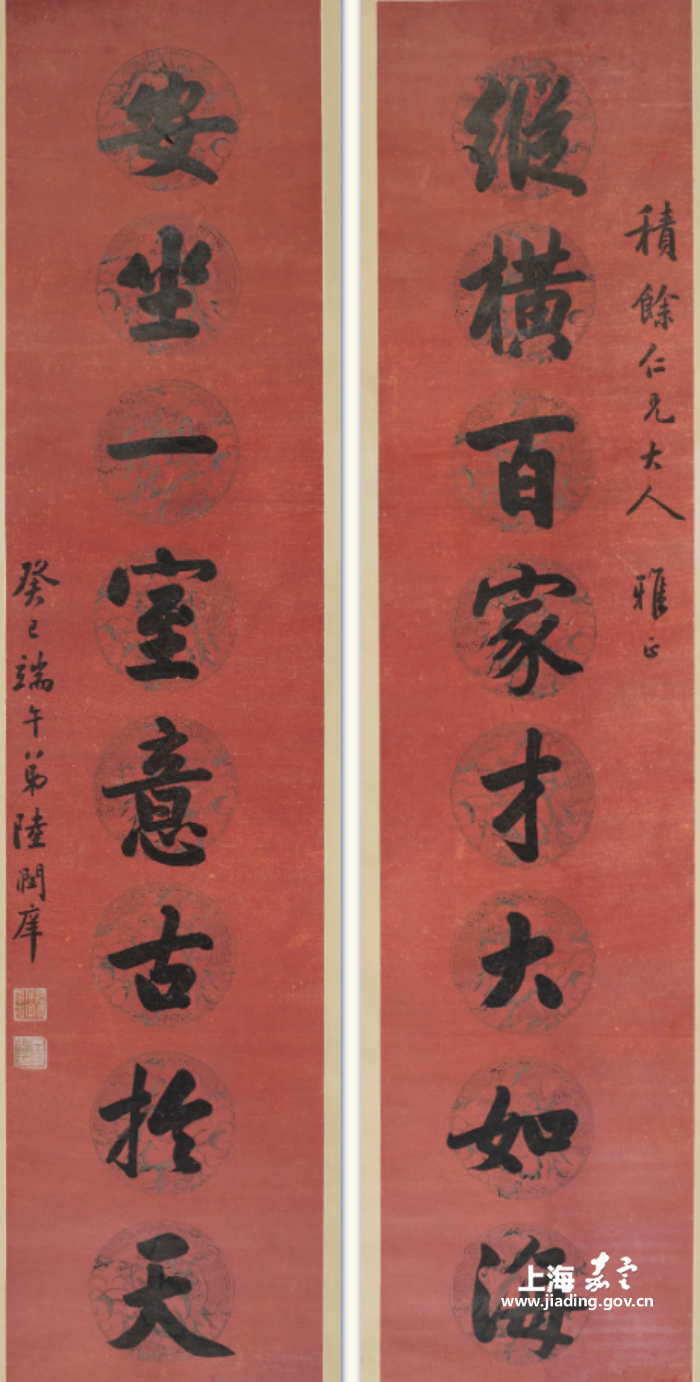 積餘仁兄大人 雅正
縱橫百家才大如海
安坐一室意古於天
癸巳端午弟陸潤庠
上海嘉定
www.jiading.gov.cn